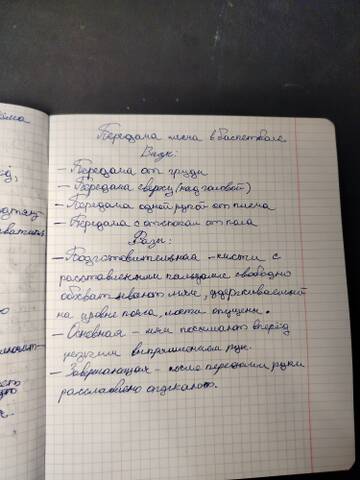 йма
Передача мяча в баскетболе
Виды:
- Передача от груди
- Передача сверху (над головой)
- Передача одной рукой от плеча
- Передача с отскоком от пола
Фазы:
- Подготовительная - кисти с
расставленными пальцами свободно
обхватывают мяч, удерживаемый
на уровне пояса, локти опущены.
- Основная - мяч посылают вперёд
резким выпрямлением рук.
- Завершающая - после передачи руки
расслаблено опускают.